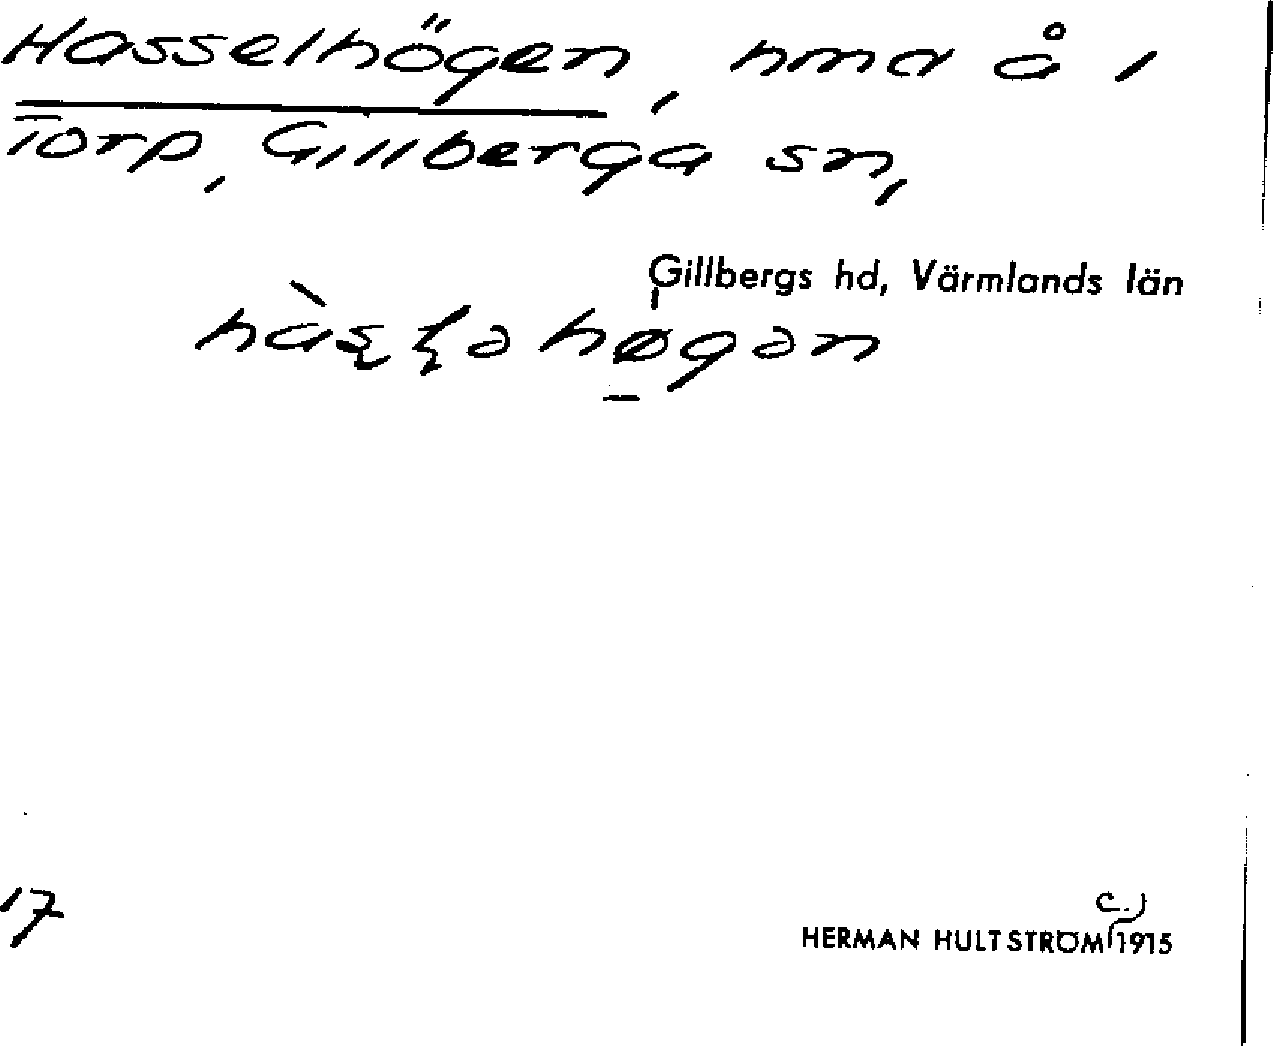 Hasselhögen, nma å i
Torp, Gillberga sn,
Gillbergs hd, Värmlands län
17
c.)
HERMAN HULTSTRÖM 1915